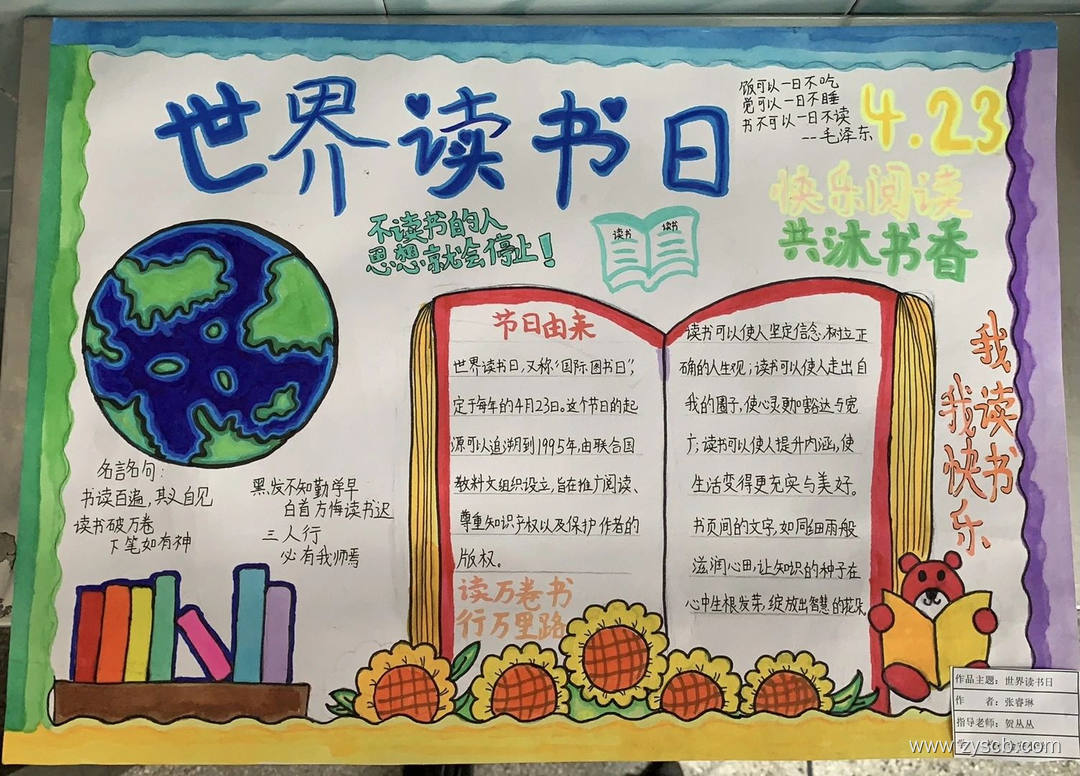 世界读书日
饭可以一日不吃
觉可以一日不睡
书不可以一日不读
--毛泽东
4.23
快乐阅读
共沐书香
不读书的人
思想就会停止!
读书 读书
节日由来
世界读书日,又称“国际图书日”,
定于每年的4月23日。这个节日的起
源可以追溯到1995年,由联合国
教科文组织设立,旨在推广阅读、
尊重知识产权以及保护作者的
版权。
读万卷书
行万里路
读书可以使人坚定信念,树立正
确的人生观;读书可以使人走出自
我的圈子,使心灵更加豁达与宽
广;读书可以使人提升内涵,使
生活变得更充实与美好。
书页间的文字,如同细雨般
滋润心田,让知识的种子在
心中生根发芽,绽放出智慧的花朵
我读书
我快乐
名言名句:
书读百遍,其义自见
读书破万卷
下笔如有神
黑发不知勤学早
白首方悔读书迟
三人行
必有我师焉
作品主题:世界读书日
作 者:张睿琳
指导老师:贺丛丛
www.zyscb.com